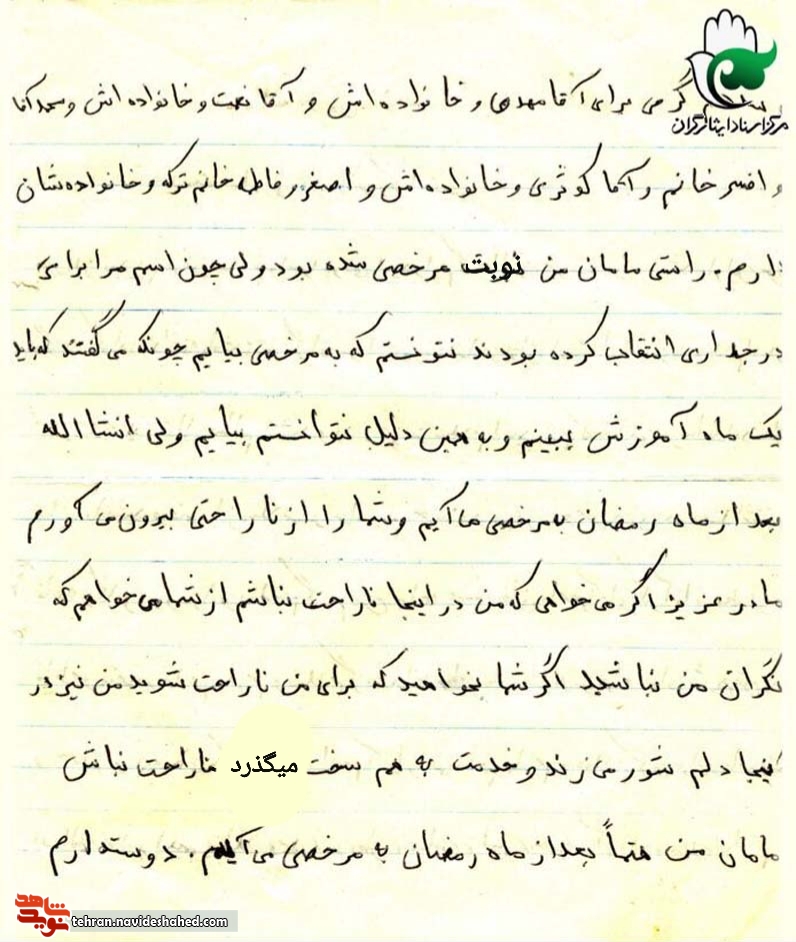 مرکز اسناد ایثارگران
سلام گرمی برای آقا مهدی و خانواده اش و آقا نعمت و خانواده اش و
و افسر خانم و آسا کوثری و خانواده اش و اصغر و فاطمه خانم ترکه و خانواده شان
دارم. راستی مامان من نوبت مرخصی شده بود ولی چون اسم مرا برای
درجداری انتخاب کرده بودند نتونستم که به مرخصی بیایم چونکه می گفتند که باید
یک ماه آموزش ببینم و به همین دلیل نتوانستم بیایم ولی انشاالله
بعد از ماه رمضان به مرخصی می آیم و شما را از ناراحتی بیرون می آورم
مادر عزیز اگر می خواهی که من در اینجا ناراحت نباشم از شما می خواهم که
نگران من نباشید اگر شما بخواهید که برای من ناراحت شوید من نیز در
اینجا دلم شور می زند و خدمت به هم سخت میگذرد ناراحت نباش
مامان من حتماً بعد از ماه رمضان به مرخصی می آیم. دوستدارم
نوید شاهد tehran.navideshahed.com